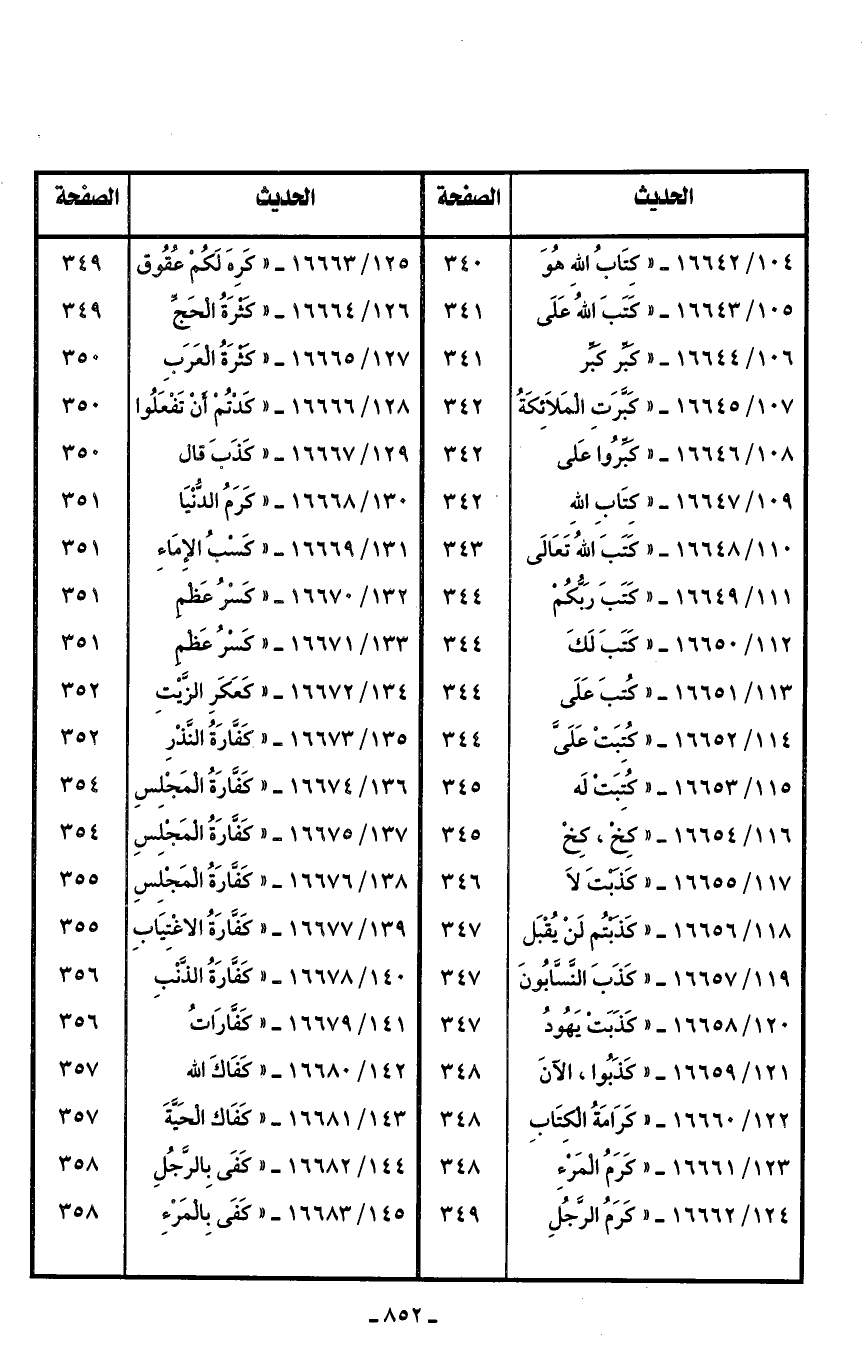 الحديث الصفحة الحديث الصفحة
١٠٤/ ١٦٦٤٢ ـ « كِتَابُ الله هُوَ ٣٤٠ ١٢٥/ ١٦٦٦٣ ـ « كَرِهَ لَكُمْ عُقُوق ٣٤٩
١٠٥/ ١٦٦٤٣ ـ « كَتَبَ اللهُ عَلَى ٣٤١ ١٢٦/ ١٦٦٦٤ ـ « كَثْرَةُ الْحَجِّ ٣٤٩
١٠٦/ ١٦٦٤٤ ـ « كَبِّر كَبِّر ٣٤١ ١٢٧/ ١٦٦٦٥ ـ « كَثْرَةُ الْعَرَبِ ٣٥٠
١٠٧/ ١٦٦٤٥ ـ « كَبَّرَتِ الْمَلَائِكَةُ ٣٤٢ ١٢٨/ ١٦٦٦٦ ـ « كَدْتُمْ أَنْ تَفْعَلُوا ٣٥٠
١٠٨/ ١٦٦٤٦ ـ « كَبِّرُوا عَلَى ٣٤٢ ١٢٩/ ١٦٦٦٧ ـ « كَذَبَ قال ٣٥٠
١٠٩/ ١٦٦٤٧ ـ « كِتَابِ اللهِ ٣٤٢ ١٣٠/ ١٦٦٦٨ ـ « كَرَمُ الدُّنْيَا ٣٥١
١١٠/ ١٦٦٤٨ ـ « كَتَبَ اللهُ تَعَالَى ٣٤٣ ١٣١/ ١٦٦٦٩ ـ « كَسْبُ الإِمَاءِ ٣٥١
١١١/ ١٦٦٤٩ ـ « كَتَبَ رَبُّكُمْ ٣٤٤ ١٣٢/ ١٦٦٧٠ ـ « كَسْرُ عَظْمِ ٣٥١
١١٢/ ١٦٦٥٠ ـ « كَتَبَ لَكَ ٣٤٤ ١٣٣/ ١٦٦٧١ ـ « كَسْرُ عَظْمِ ٣٥١
١١٣/ ١٦٦٥١ ـ « كُتبَ عَلَى ٣٤٤ ١٣٤/ ١٦٦٧٢ ـ « كَعَكَرِ الزَّيْتِ ٣٥٢
١١٤/ ١٦٦٥٢ ـ « كُتِبَتْ عَلَىَّ ٣٤٤ ١٣٥/ ١٦٦٧٣ ـ « كَفَّارَةُ النَّذْرِ ٣٥٢
١١٥/ ١٦٦٥٣ ـ « كُتِبَتْ لَه ٣٤٥ ١٣٦/ ١٦٦٧٤ ـ « كَفَّارَةُ الْمَجْلِسِ ٣٥٤
١١٦/ ١٦٦٥٤ ـ « كِخْ ، كِخْ ٣٤٥ ١٣٧/ ١٦٦٧٥ ـ « كَفَّارَةُ الْمَجْلِسِ ٣٥٤
١١٧/ ١٦٦٥٥ ـ « كَذَبْتَ لاَ ٣٤٦ ١٣٨/ ١٦٦٧٦ ـ « كَفَّارَةُ الْمَجْلِسِ ٣٥٥
١١٨/ ١٦٦٥٦ ـ « كَذَبْتُم لَنْ يُقْبَل ٣٤٧ ١٣٩/ ١٦٦٧٧ ـ « كَفَّارَةُ الاغْتِيَابِ ٣٥٥
١١٩/ ١٦٦٥٧ ـ « كَذَبَ النَّسَّابُونَ ٣٤٧ ١٤٠/ ١٦٦٧٨ ـ « كَفَّارَةُ الذَّنْبِ ٣٥٦
١٢٠/ ١٦٦٥٨ ـ « كَذَبَتْ يَهُودُ ٣٤٧ ١٤١/ ١٦٦٧٩ ـ « كَفَّارَاتُ ٣٥٦
١٢١/ ١٦٦٥٩ ـ « كَذَبُوا ، الآنَ ٣٤٨ ١٤٢/ ١٦٦٨٠ ـ « كَفَاكَ الله ٣٥٧
١٢٢/ ١٦٦٦٠ ـ « كَرَامَةُ الكِتَابِ ٣٤٨ ١٤٣/ ١٦٦٨١ ـ « كَفَاك الْحَيَّةَ ٣٥٧
١٢٣/ ١٦٦٦١ ـ « كَرَمُ الْمَرْءِ ٣٤٨ ١٤٤/ ١٦٦٨٢ ـ « كَفَى بِالرَّجُلِ ٣٥٨
١٢٤/ ١٦٦٦٢ ـ « كَرَمُ الرَّجُلِ ٣٤٩ ١٤٥/ ١٦٦٨٣ ـ « كَفَى بِالْمَرْءِ ٣٥٨
ـ ٨٥٢ ـ